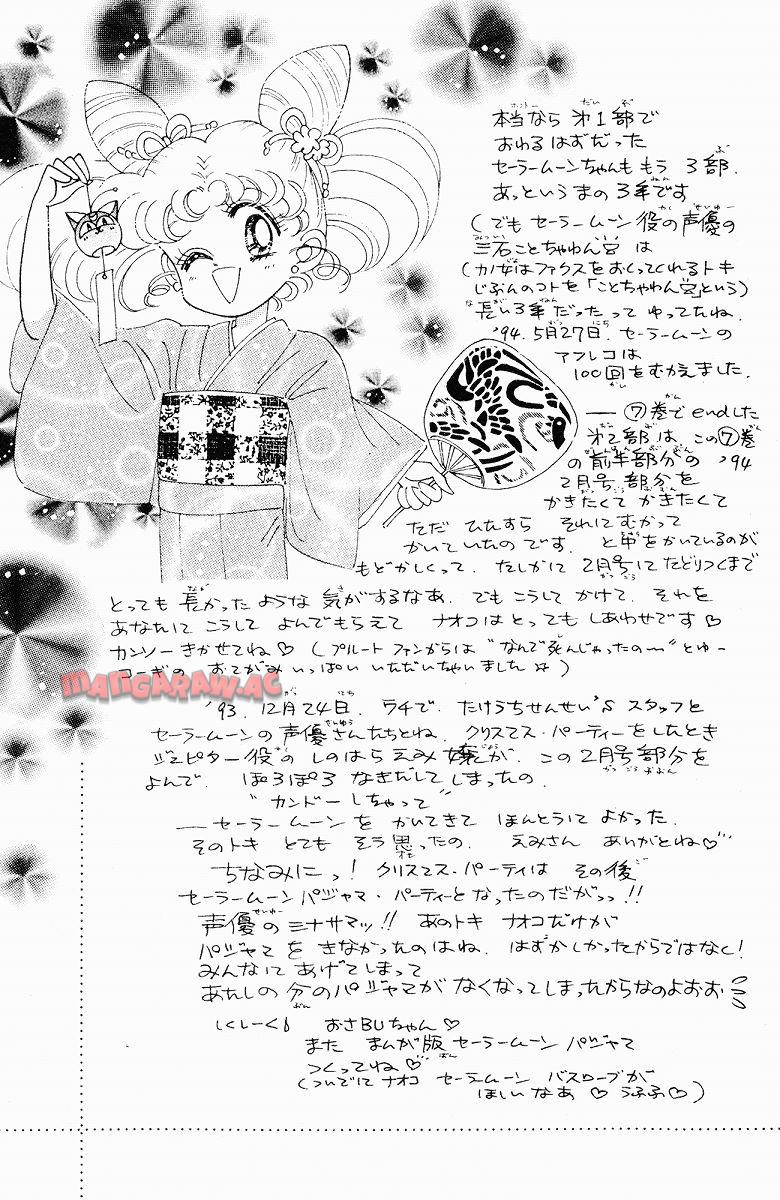 本当なら 第1部で
おわるはずだった
セーラームーンちゃんも もう 3部.
あっというまの 3年です
(でも セーラームーン役の声優の
三石ことちゃわん宮 は
(カノ女はファクスをおくってくれるトキ
じぶんのコトを「ことちゃわん宮」という)
長い3年だった って ゆってたね.
'94. 5月27日. セーラームーンの
アフレコは
100回をむかえました.
— ⑦巻でendした
第2部は、この⑦巻
の前半部分の '94
2月号部分を
かきたくて かきたくて
ただ ひたすら それにむかって
かいていたのです. と今をかいているのが
もどかしくって. たしかに 2月号にたどりつくまで
とっても 長かったような 気がするなあ. でもこうして かけて. それを
あなたに こうして よんでもらえて ナオコはとってもしあわせです♡
カンソー きかせてね♡ (プルートファンからは "なんで死んじゃったの〜"とゆー
コーギの おてがみ いっぱい いただいちゃいました☆)
MANGARAW.AC
'93. 12月24日. ウチで. たけうちせんせい's スタッフと
セーラームーンの声優さんたちとね. クリスマス・パーティーをしたとき
ジュピター役の しのはらえみ嬢が. この2月号部分を
よんで. ぽろぽろ なきだしてしまったの.
"カンドーしちゃって"
—セーラームーンを かいてきて ほんとうに よかった.
そのトキ とても そう思ったの. えみさん ありがとね♡
ちなみにっ! クリスマス・パーティは その後
セーラームーンパジャマ・パーティーとなったのだがっっ!!
声優のミナサマッ!! あのトキ ナオコだけが
パジャマを きなかったのはね. はずかしかったからではなく!
みんなに あげてしまって
あたしの 分のパジャマが なくなってしまったからなのよおお
しくしーく おさBUちゃん♡
また まんが版 セーラームーン パジャマ
つくってね♡
(ついでに ナオコ セーラームーン バスローブが
ほしいなあ♡ うふふ♡)